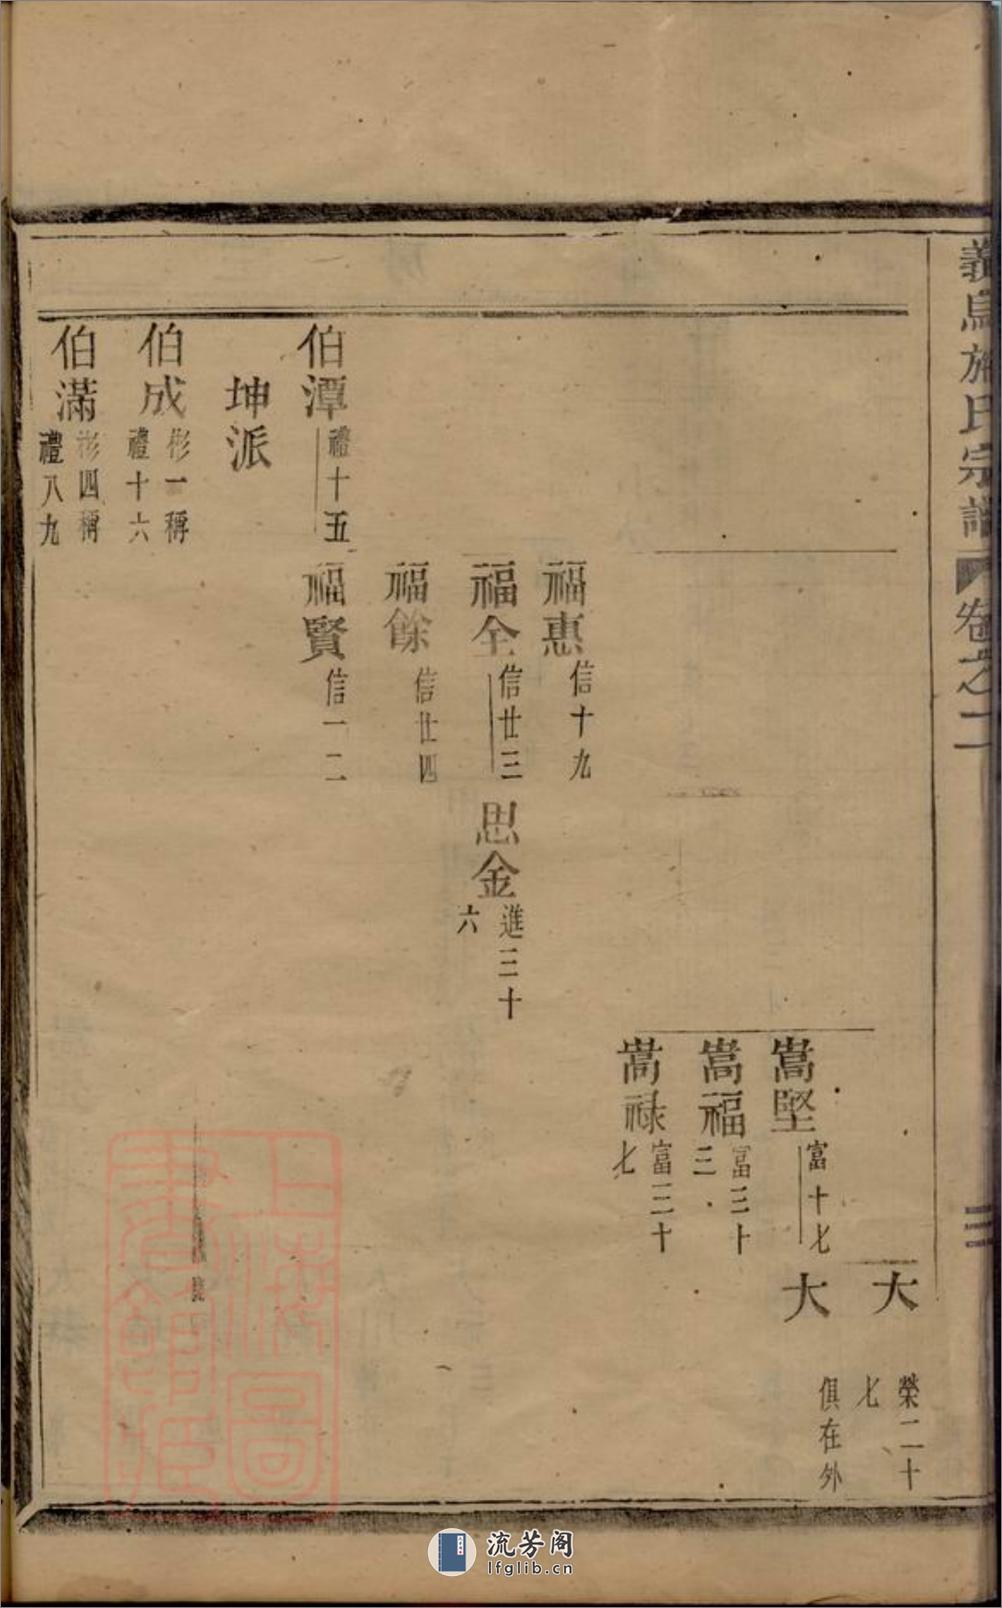 義烏施氏宗譜 卷之二
三
大
榮二十
七
大
俱在外
嵩堅
富十七
嵩福
富三十
三
嵩祿
富三十
七
福惠
信十九
福全
信廿三
思金
進三十
六
福餘
信廿四
伯潭
禮十五
福賢
信一二
坤派
伯成
彬一稱
禮十六
伯滿
彬四稱
禮八九
上海圖
書館藏
流芳阁
lfglib.cn